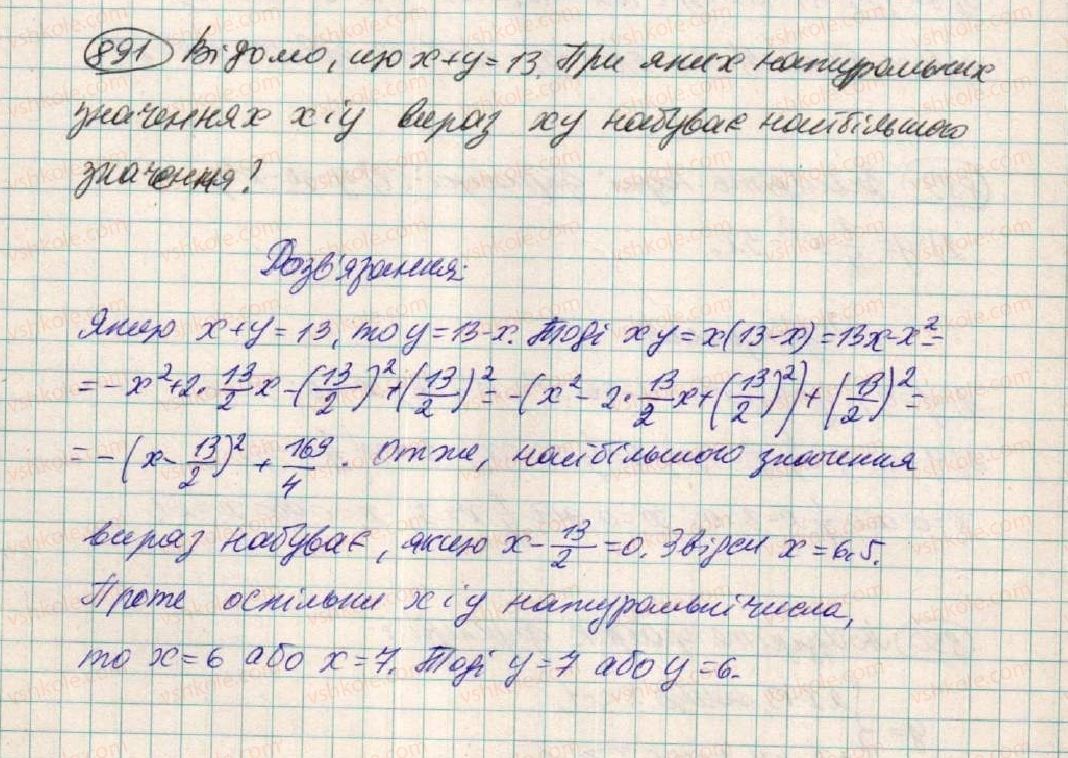 891 Відомо, що x+y=13. При яких натуральних
значеннях x і y вираз xy набуває найбільшого
значення?
Розв'язання:
Якщо x+y=13, то y=13-x. Тоді xy=x(13-x)=13x-x²=
=-x²+2·13/2x-(13/2)²+(13/2)²=-(x²-2·13/2x+(13/2)²)+(13/2)²=
=-(x-13/2)²+169/4. Отже, найбільшого значення
вираз набуває, якщо x-13/2=0. Звідси x=6,5.
Проте оскільки x і y натуральні числа,
то x=6 або x=7. Тоді y=7 або y=6.